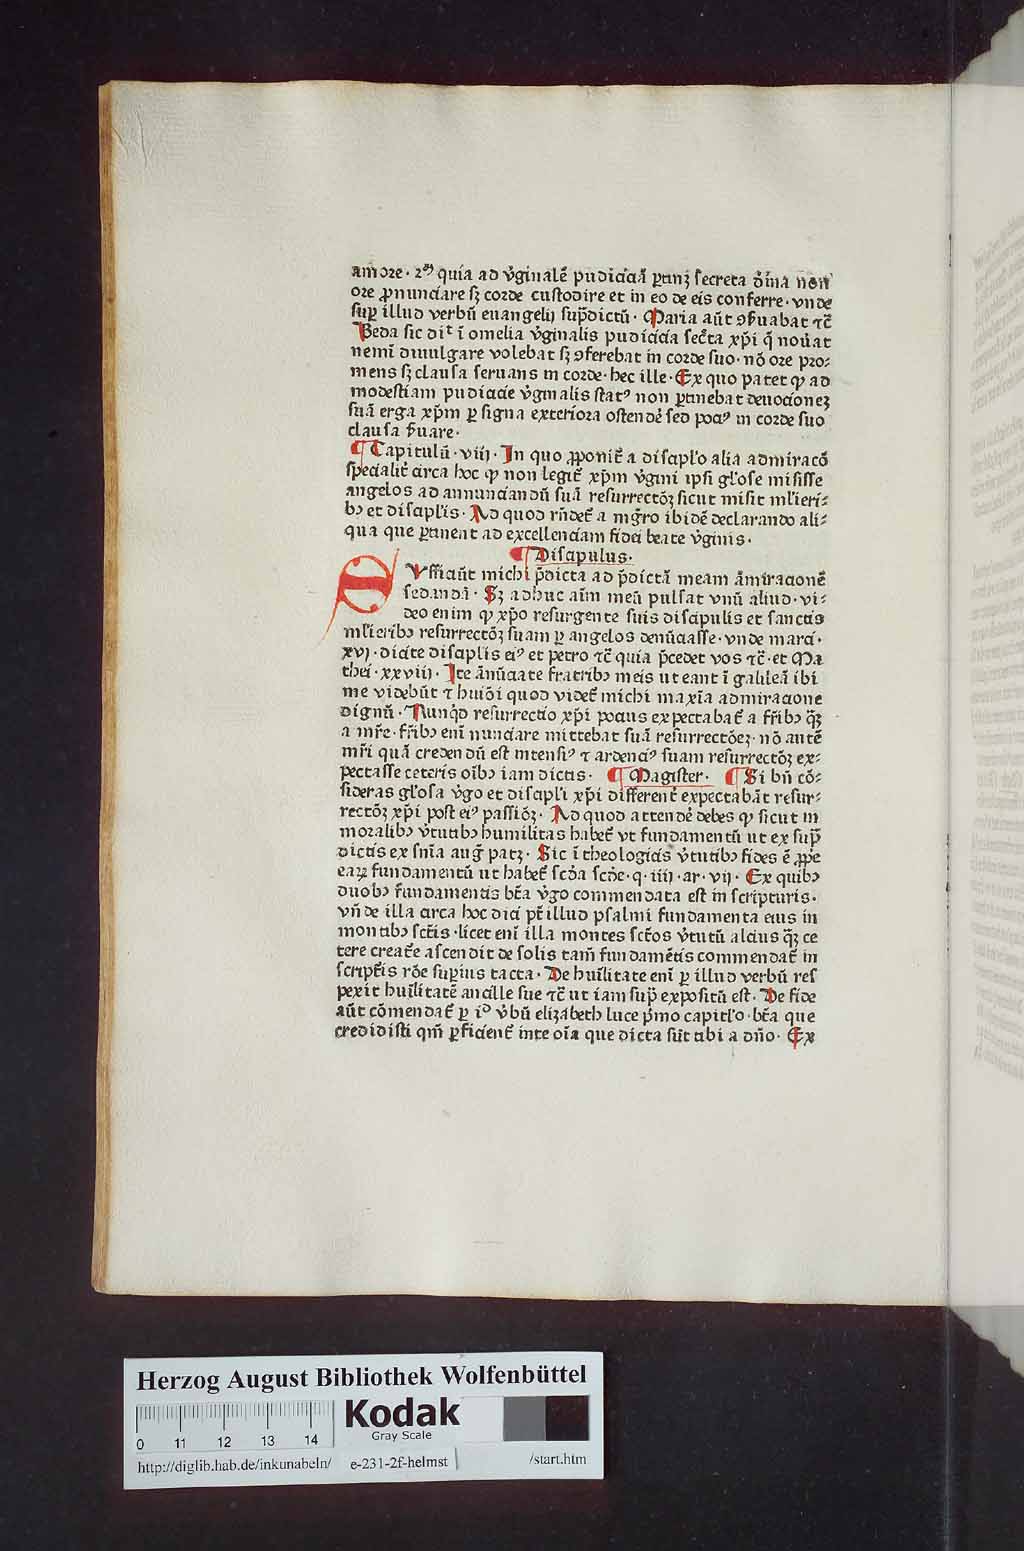 amore · 2ᵐ quia ad v̉ginalē pudiciciā ꝑtinꝫ secreta diīna non
ore ꝓnunciare sꝫ corde custodire et in eo de eis conferre · vnde
suꝑ illud verbū euangelij sup̄dictū · Maria aūt ꝯseruabat ⁊c̄
Beda sic dit ī omelia v̉ginalis pudicicia sec̄ta xp̄i q̄ nouat
nemī diuulgare volebat sꝫ ꝯferebat in corde suo · nō ore pro⸗
mens sꝫ clausa seruans in corde · hec ille · Ex quo patet ꝙ ad
modestiam pudicicie v̉ginalis statꝰ non ꝑtinebat deuocionez
suā erga xp̄m ꝑ signa exteriora ostendē sed pociꝰ in corde suo
clausa s̄uare ·
¶ Capitulū · viij · In quo ꝓponit̄ a discipl̓o alia admiracō
specialit̄ circa hoc ꝙ non legit̄ xp̄m v̉gini ipsi gl̓ose misisse
angelos ad annunciandū suā resurrectōꝫ sicut misit ml̓ieri⸗
bꝫ et discipl̓is · Ad quod rn̄det̄ a mgr̄o ibidē declarando ali⸗
qua que ꝑtinent ad excellenciam fidei beate v̉ginis ·
¶ Discipulus ·
SVfficiūt michi p̄dicta ad p̄dictā meam āmiracionē
sedandā · Sꝫ adhuc aīm meū pulsat vnū aliud · vi⸗
deo enim ꝙ xp̄o resurgente suis discipulis et sanctis
ml̓ieribꝫ resurrectōꝫ suam ꝑ angelos denūciasse · vnde marci ·
xvj · dicite discipl̓is eiꝰ et petro ⁊c̄ quia p̄cedet vos ⁊c̄ · et Ma
thei · xxviij · Ite ānūciate fratribꝫ meis ut eant ī galileā ibi
me videbūt ⁊ huiōi quod videt̄ michi maxīa admiracione
dignū · Nunqd̓ resurrectio xp̄i pocius expectabat̄ a fr̄ibꝫ q̄ꝫ
a mr̄e · fr̄ibꝫ enī nunciare mittebat suā resurrectōeꝫ · nō autē
mr̄i quā credendū est intensiꝰ ⁊ ardenciꝰ suam resurrectōꝫ ex⸗
pectasse ceteris oībꝫ iam dictis · ¶ Magister · ¶ Si bn̄ cō⸗
sideras gl̓osa v̉go et discipl̓i xp̄i different̄ expectabāt resur⸗
rectōꝫ xp̄i post eiꝰ passiōꝫ · Ad quod attendē debes ꝙ sicut in
moralibꝫ v̉tutibꝫ humilitas habet̄ vt fundamentū ut ex sup̄
dictis ex sn̄ia aug̓ patꝫ · Sic ī theologicis v̉tutibꝫ fides ē ꝓp̄e
eaꝝ fundamentū ut habet̄ scd̄a scd̄e · q · iiij · ar · vij · Ex quibꝫ
duobꝫ fundamentis bt̄a v̉go commendata est in scripturis ·
vn̄de illa circa hoc dici pt̄ illud psalmi fundamenta eius in
montibꝫ sct̄is · licet enī illa montes sct̄os v̉tutū alcius q̄ꝫ ce
tere creat̄e ascendit de solis tam̄ fundamētis commendat̄ in
script̄is rōe suꝑius tacta · De huīlitate enī ꝑ illud verbū res
pexit huīlitatē ancille sue ⁊c̄ ut iam sup̄ expositū est · De fide
aūt cōmendat̄ ꝑ iᵈ v̉bū elizabeth luce p̄mo capitl̓o · bt̄a que
credidisti qm̄ ꝑficient̄ in te oīa que dicta sūt tibi a dn̄o · Ex
Herzog August Bibliothek Wolfenbüttel
Kodak
Gray Scale
0 11 12 13 14
http://diglib.hab.de/inkunabeln/ e-231-2f-helmst /start.htm